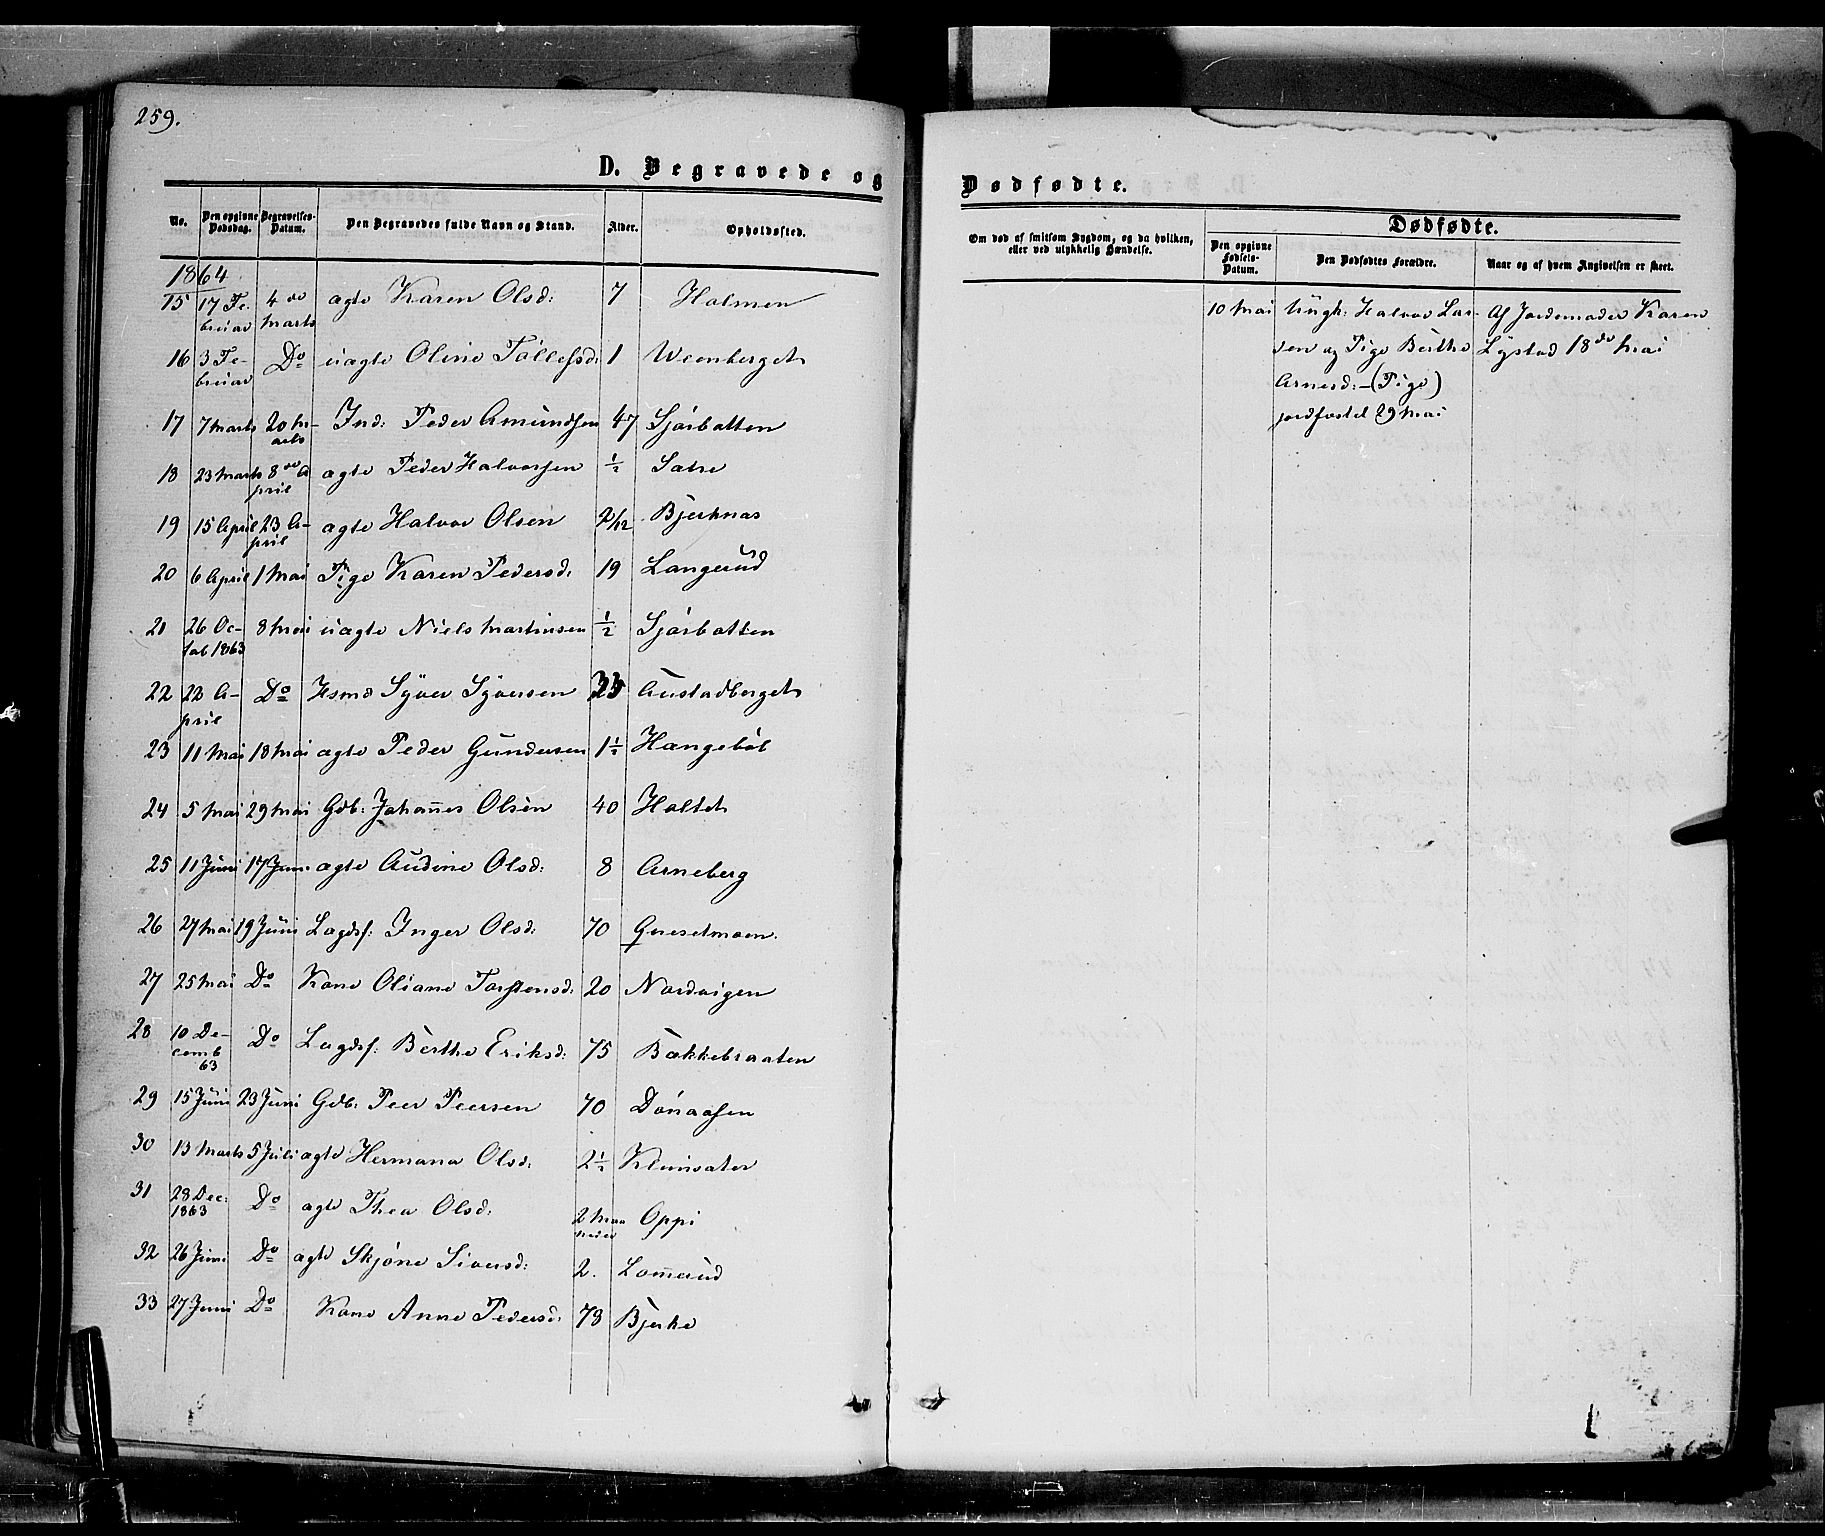 259.
D. Begravede og
No. Den opgivne Dødsdag. Begravelses-Datum. Den Begravedes fulde Navn og Stand. Alder. Opholdssted.
1864
15 17 Februar 4de Marts ægte Karen Olsd: 7 Holmen
16 3 Februar Do uægte Oline Tollefsd: 1
17 7 Marts 20 Marts Ind: Peder Amundsen 47 Sjørbotten
18 23 Marts 8de April ægte Peder Halvorsen ½ Sætre
19 15 April 23 April ægte Halvor Olsen 2/12 Bjerknæs
20 6 April 1 Mai Pige Karen Pedersd: 19 Langerud
21 26 Octob 1863 8 Mai uægte Niels Martinsen ½ Sjørbotten
22 22 April Do Husmd Syver Syversen Austadberget
23 11 Mai 18 Mai ægte Peder Gundersen 1½
24 5 Mai 29 Mai Gdb: Johannes Olsen 40 Holtet
25 11 Juni 17 Juni ægte Audine Olsd: 8 Arneberg
26 27 Mai 19 Juni Lægdsf: Inger Olsd: 70
27 25 Mai Do Kone Oliane Torstensd: 20 Nordvigen
28 10 Decemb 63 Do Lægdsf: Berthe Eriksd: 75 Bækkebraaten
29 15 Juni 23 Juni Gdb: Peer Peersen 70 Dønaasen
30 13 Marts 5 Juli ægte Hermana Olsd: 2½ Kleinsæter
31 28 Dec: 1863 Do ægte Thea Olsd: 2 Maaneder Oppi
32 26 Juni Do ægte Skjøne Siversd: 2. Lomerud
33 27 Juni Do Kone Anne Pedersd: 78 Bjerke
Dødfødte.
Om død af smitsom Sygdom, og da hvilken,
eller ved ulykkelig Hændelse.
Dødfødte.
Den opgivne Fødsels-Datum. Den Dødfødtes Forældre. Naar og af hvem Angivelsen er skeet.
10 Mai Ungk: Halvor Lar- Af Jordemoder Karen
sen og Pige Berthe Lystad 18de Mai
Arnesd: – (Pige)
jordfæstet 29 Mai